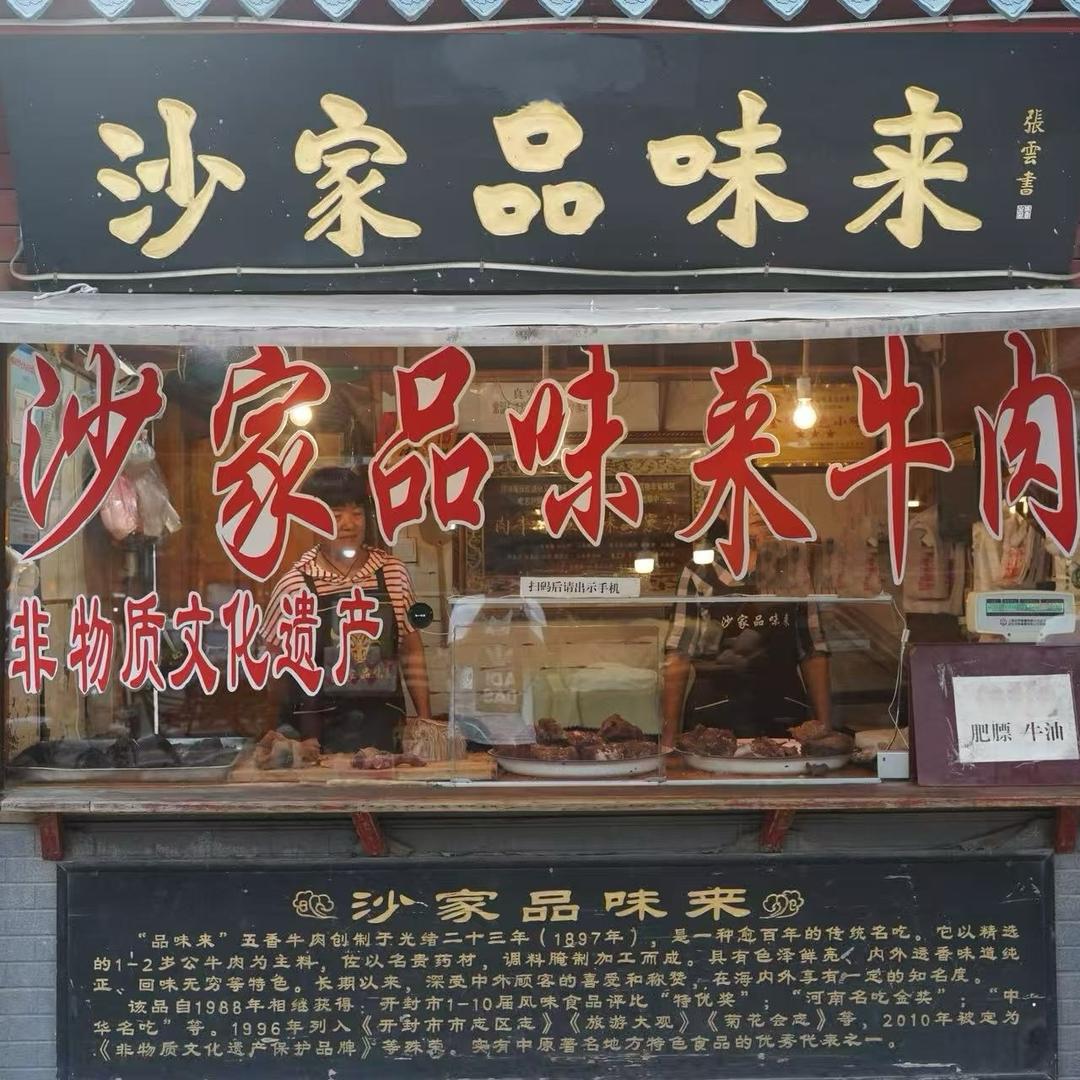 沙家品味来
張雲書
沙家品味来牛肉
非物质文化遗产
扫码后请出示手机
沙家品味来
肥膘 牛油
沙家品味来
“品味来”五香牛肉创制于光绪二十三年（1897年），是一种愈百年的传统名吃。它以精选
的1-2岁公牛肉为主料，佐以名贵药材，调料腌制加工而成。具有色泽鲜亮、内外透香味道纯
正、回味无穷等特色。长期以来，深受中外顾客的喜爱和称赞，在海内外享有一定的知名度。
该品自1988年相继获得：开封市1-10届风味食品评比“特优奖”；“河南名吃金奖”；“中
华名吃”等。1996年列入《开封市市志区志》《旅游大观》《菊花会志》等，2010年被定为
《非物质文化遗产保护品牌》等殊荣。实有中原著名地方特色食品的优秀代表之一。